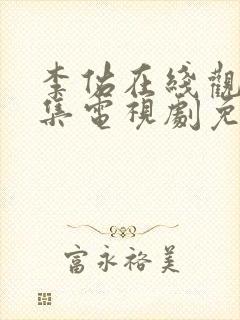 李佑在綫觀
集電視劇免
富永裕美